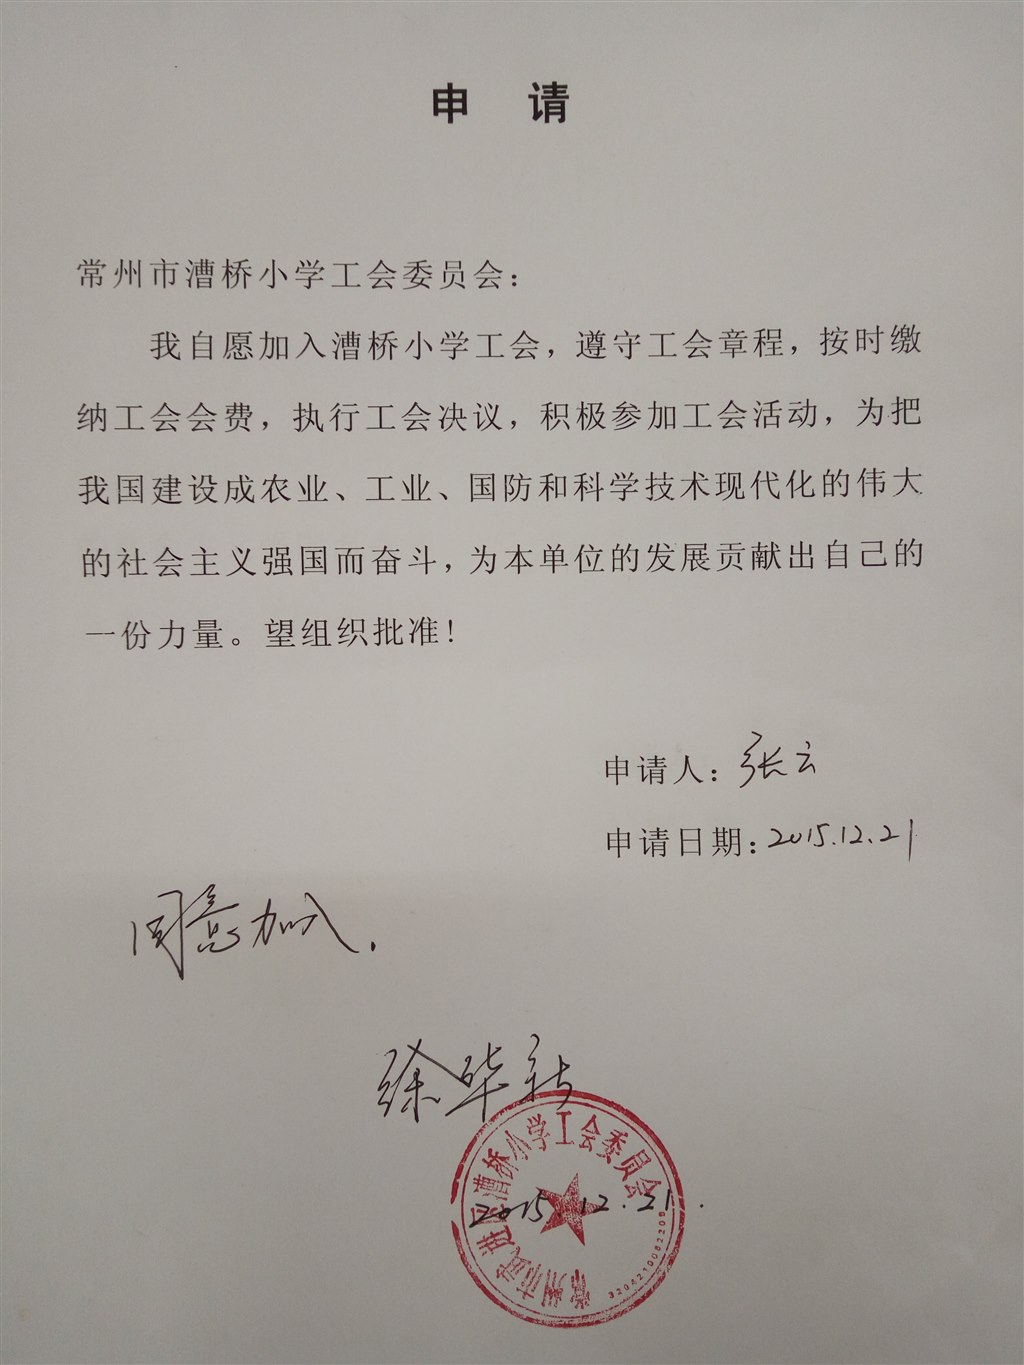 申 请
常州市漕桥小学工会委员会：
我自愿加入漕桥小学工会，遵守工会章程，按时缴
纳工会会费，执行工会决议，积极参加工会活动，为把
我国建设成农业、工业、国防和科学技术现代化的伟大
的社会主义强国而奋斗，为本单位的发展贡献出自己的
一份力量。望组织批准！
申请人：张云
申请日期：2015.12.21
同意加入.
徐华新
常州市武进区漕桥小学工会委员会
2015.12.21.